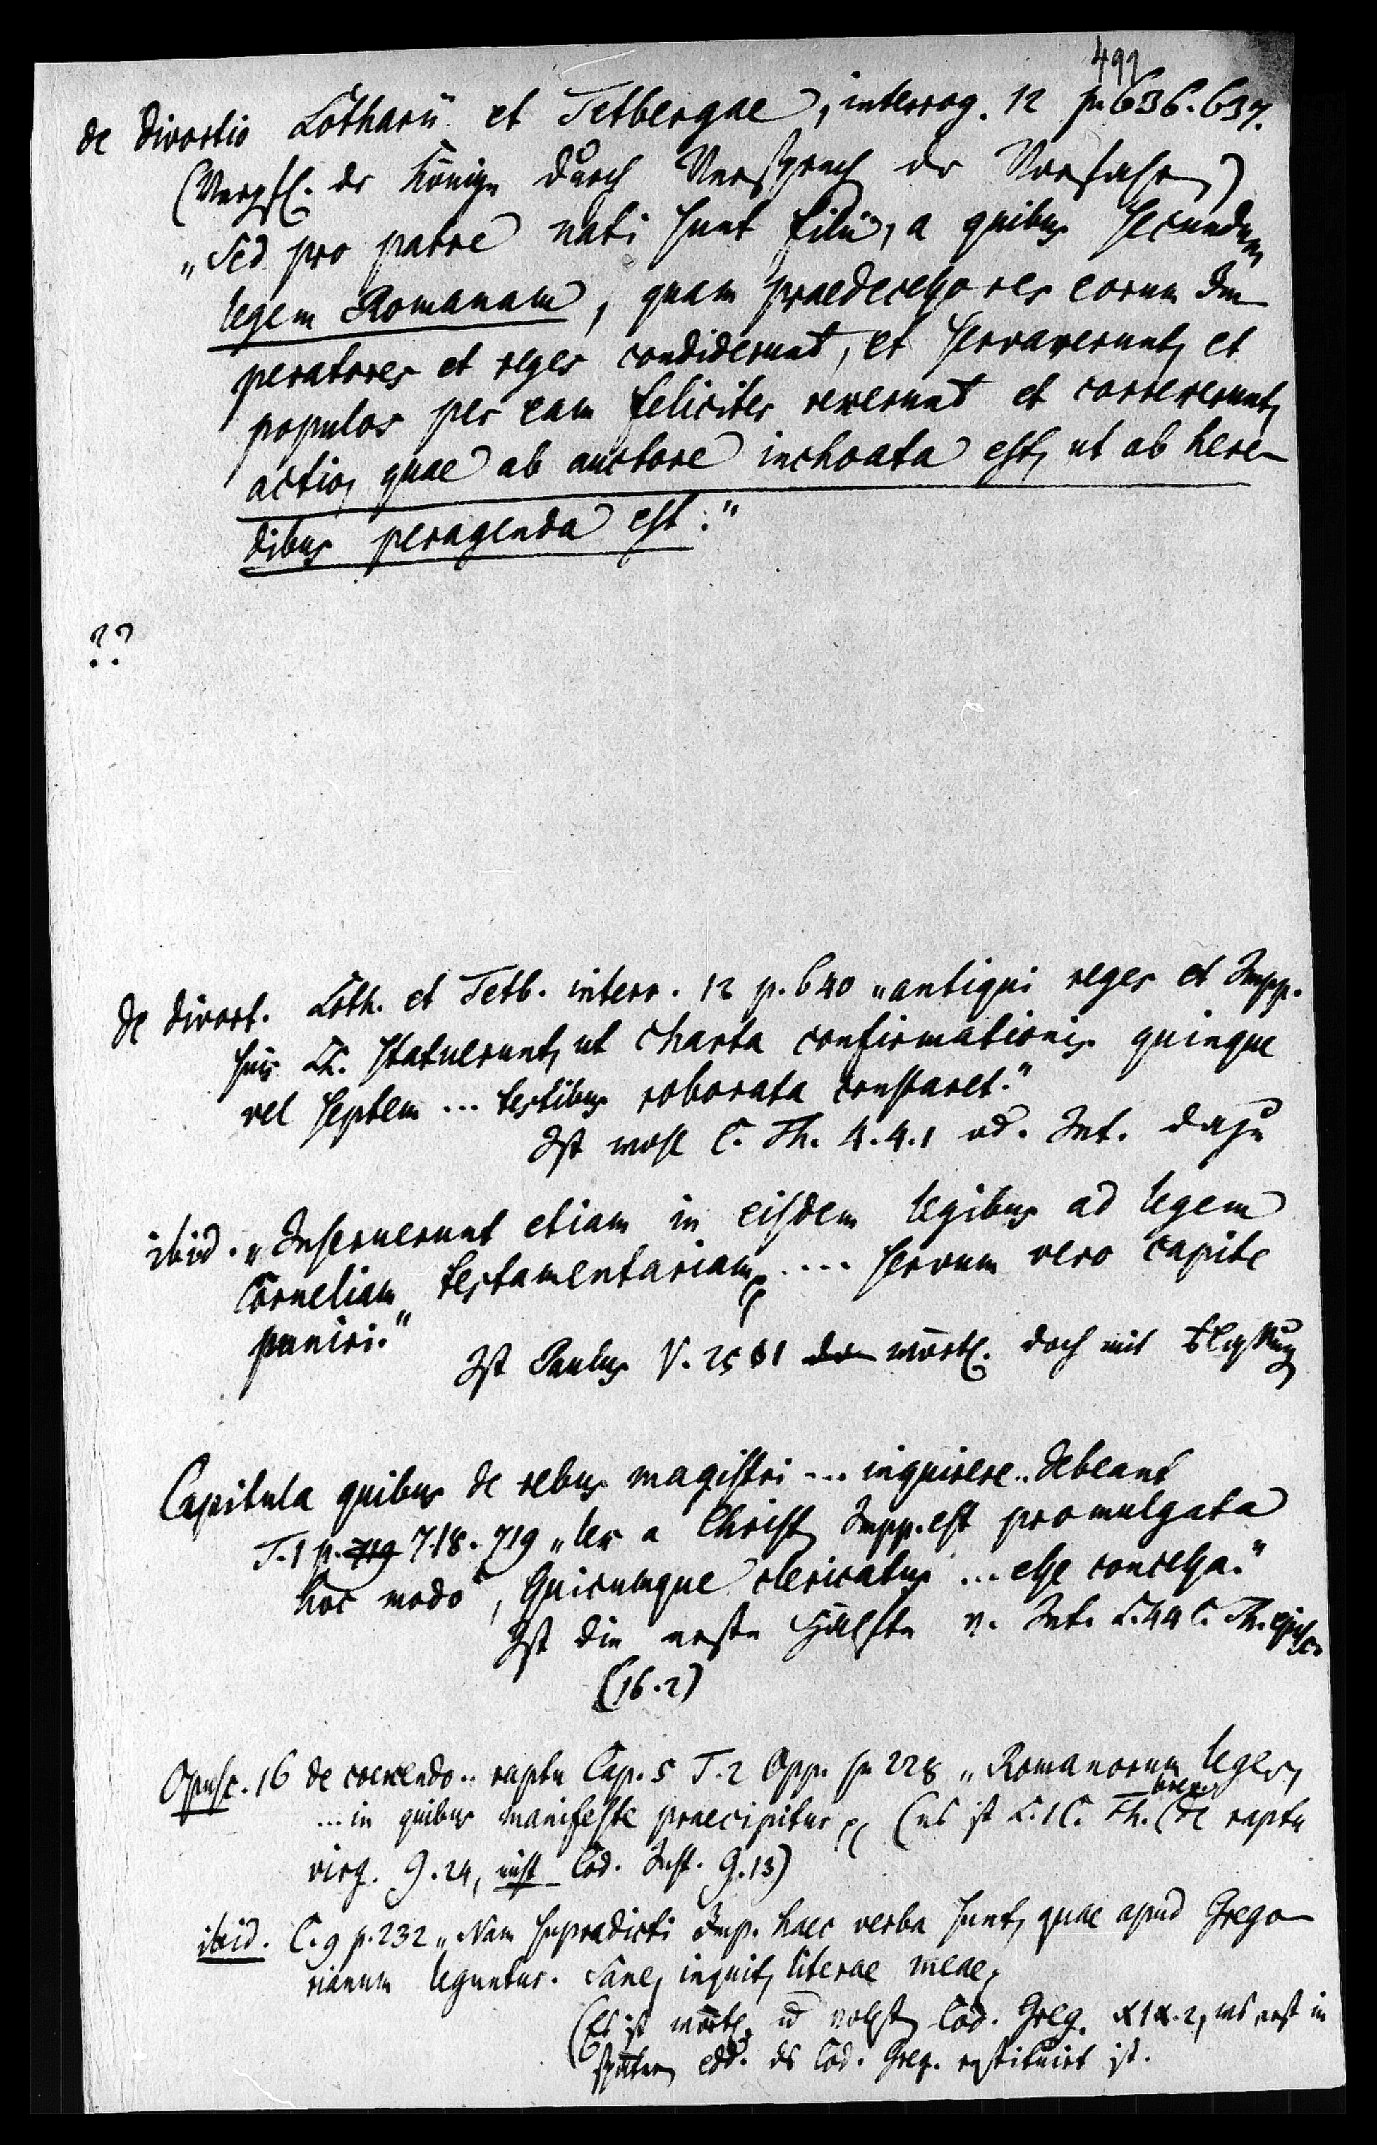 499
de divortio Lotharii et Tetbergae, interrog. 12 p. 636. 637.
(Verpfl. der Könige durch Versprech der Vorfahren)
„Sed pro patre nati sunt filii, a quibus secundum
legem Romanam, quam praedecessores eorum Im-
peratores et reges condiderunt, et servaverunt, et
populos per eam feliciter rexerunt et correxerunt,
actio, quae ab auctore inchoata est, ut ab here-
dibus peragenda est."
??
de divort. Loth. et Tetb. interr. 12 p. 640 „antiqui reges et Impp.
suis LL. statuerunt, ut charta confirmationis quinque
vel septem ... testibus roborata constaret."
Ist wohl C. Th. 4.4.1 od. Int. dazu
ibid. „Inseruerunt etiam in eisdem legibus ad legem
Corneliam testamentariam, .... servum vero capite
puniri."
Ist Paulus V. 25 § 1 wörtl. doch mit
Capitula quibus de rebus magistri ... inquirere .. debeant
T. 1 p. 719 718. 719 „lex a Christ. Impp. est promulgata
hoc modo, Quicumque clericatus ... esse concessa."
Ist die erste Hälfte v. Int. L. 44 C. Th. episc.
(16.2)
Opusc. 16 de coercendo .. raptu Cap. 5 T. 2 Opp. p. 228 „Romanorum leges,
... in quibus manifeste praecipitur (es ist L. 1 C. Th. de raptu
virg. 9.24, nicht Cod. Just. 9.13)
ibid. C. 9 p. 232 „Nam supradicti Imp. haec verba sunt, quae apud Grego-
rianum leguntur. Sane, inquit, literae meae,
(Es ist wörtl. u vollst. Cod. Greg. XIX. 2, was erst in
spätern edd. des Cod. Greg. restituirt ist.